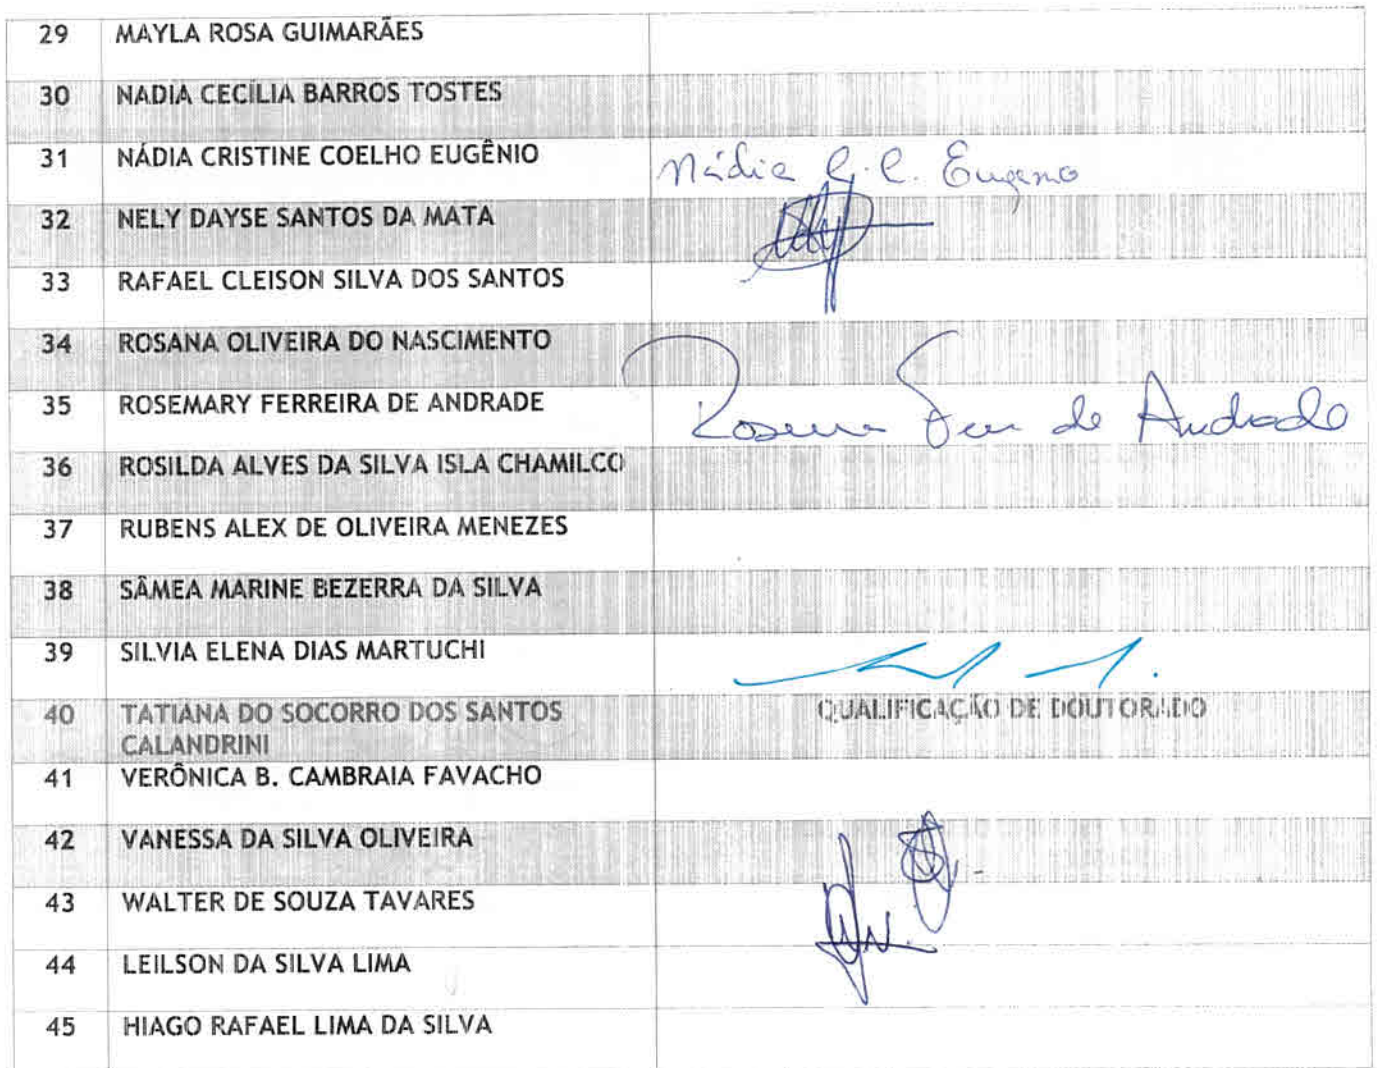 29 MAYLA ROSA GUIMARÃES
30 NADIA CECÍLIA BARROS TOSTES
31 NÁDIA CRISTINE COELHO EUGÊNIO Nádia C. C. Eugenio
32 NELY DAYSE SANTOS DA MATA
33 RAFAEL CLEISON SILVA DOS SANTOS
34 ROSANA OLIVEIRA DO NASCIMENTO
35 ROSEMARY FERREIRA DE ANDRADE de Andrade
36 ROSILDA ALVES DA SILVA ISLA CHAMILCO
37 RUBENS ALEX DE OLIVEIRA MENEZES
38 SÂMEA MARINE BEZERRA DA SILVA
39 SILVIA ELENA DIAS MARTUCHI
40 TATIANA DO SOCORRO DOS SANTOS QUALIFICAÇÃO DE DOUTORADO
CALANDRINI
41 VERÔNICA B. CAMBRAIA FAVACHO
42 VANESSA DA SILVA OLIVEIRA
43 WALTER DE SOUZA TAVARES
44 LEILSON DA SILVA LIMA
45 HIAGO RAFAEL LIMA DA SILVA